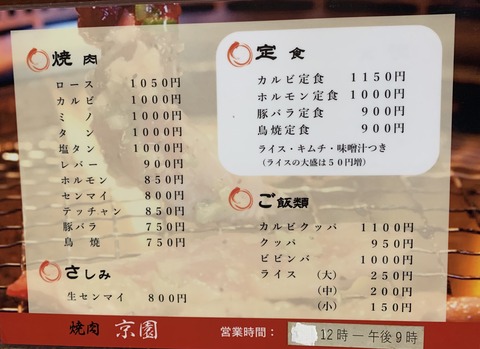 焼肉
ロース 1050円
カルビ 1000円
ミノ 1000円
タン 1000円
塩タン 1000円
レバー 900円
ホルモン 850円
センマイ 800円
テッチャン 850円
豚バラ 750円
鳥焼 750円
さしみ
生センマイ 800円
定食
カルビ定食 1150円
ホルモン定食 1000円
豚バラ定食 900円
鳥焼定食 900円
ライス・キムチ・味噌汁つき
(ライスの大盛は50円増)
ご飯類
カルビクッパ 1100円
クッパ 950円
ビビンバ 1000円
ライス (大) 250円
(中) 200円
(小) 150円
焼肉 京園
営業時間: 12時―午後9時